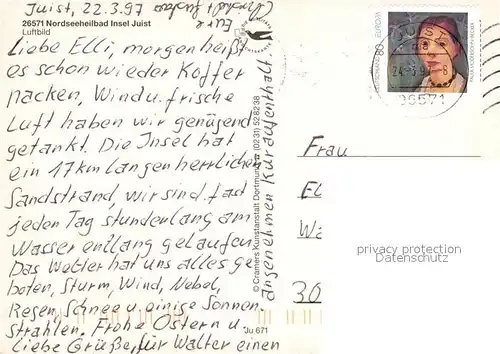 Juist, 22.3.97
26571 Nordseeheilbad Insel Juist
Luftbild
Liebe Elli, morgen heißt
es schon wieder Koffer
packen, Wind u. frische
Luft haben wir genügend
getankt. Die Insel hat
ein 17 km langen herrlichen
Sandstrand, wir sind fast
jeden Tag stundenlang am
Wasser entlang gelaufen.
Das Wetter hat uns alles ge-
boten, Sturm, Wind, Nebel,
Regen, Schnee u. einige Sonnen-
strahlen. Frohe Ostern u.
liebe Grüße, für Walter einen
angenehmen Kuraufenthalt
Eure
© Cramers Kunstanstalt Dortmund (02 31) 52 82 38
Ju 671
EUROPA
80
24.-3.97-8
26571
Frau
El
Wa
30
privacy protection
Datenschutz